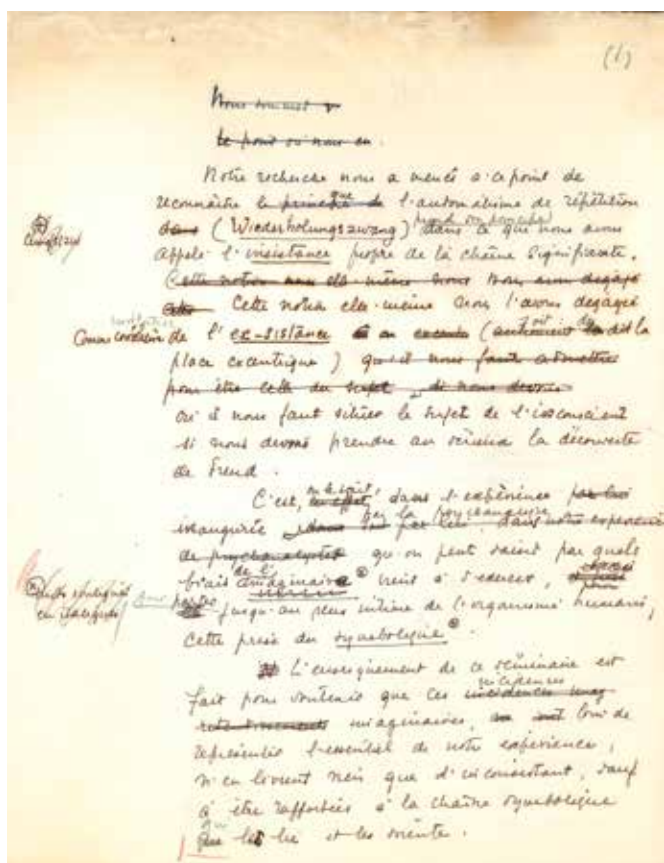 (1)
Nous sommes
Le point où nous en
Notre recherche nous a mené à ce point de
reconnaître le principe de que l'automatisme de répétition
(Wiederholungszwang) prend son principe dans ce que nous avons
appelé l'insistance propre de la chaîne signifiante.
Cette notion elle-même nous avons dégagé
Cette notion elle-même nous l'avons dégagée
Comme corrélative de l'ex-sistence (soit de la
place excentrique) qu'il nous faut admettre
pour être celle du sujet, si nous devons
où il nous faut situer le sujet de l'inconscient
si nous devons prendre au sérieux la découverte
de Freud.
C'est, on le sait, dans l'expérience
inaugurée par la psychanalyse dans notre expérience
de psychanalystes qu'on peut saisir par quels
biais de l'imaginaire vient à s'exercer,
jusqu'au plus intime de l'organisme humain,
cette prise du symbolique.
L'enseignement de ce séminaire est
fait pour soutenir que ces incidences
imaginaires, loin de
représenter l'essentiel de notre expérience,
n'en livrent rien que d'inconsistant, sauf
à être rapportées à la chaîne symbolique
qui les lie et les oriente.